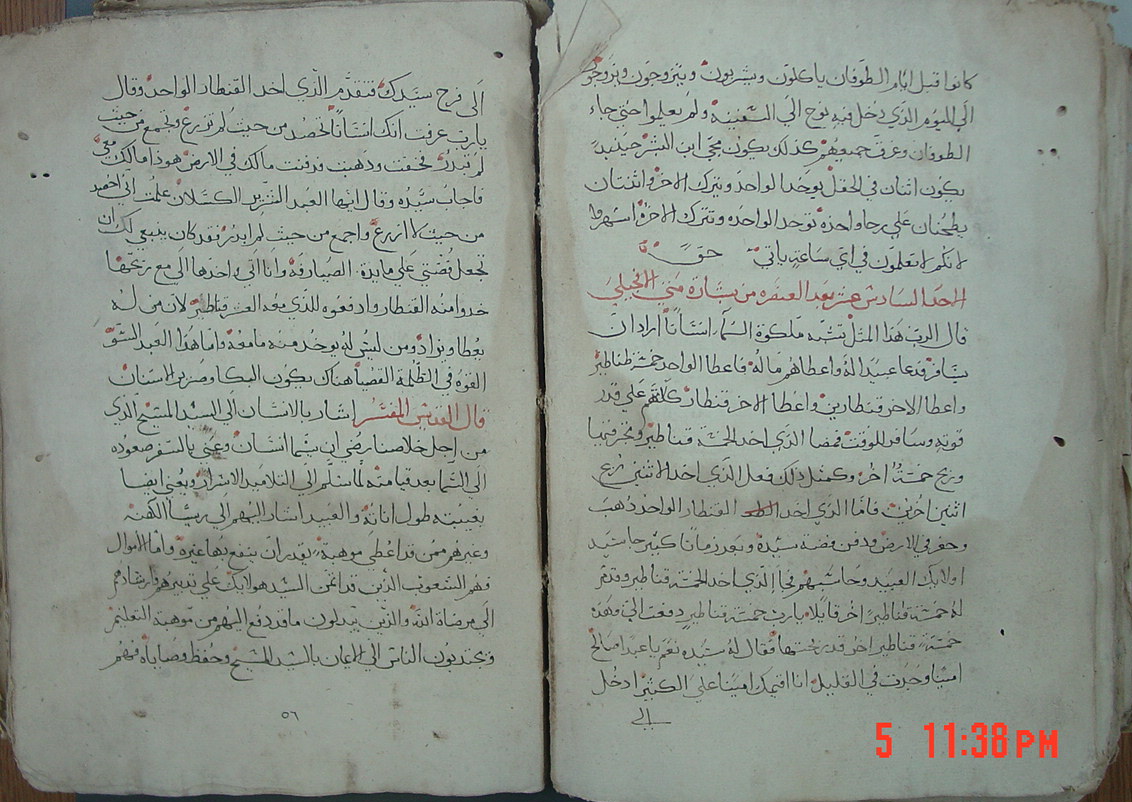 كانوا قبل ايام الطوفان ياكلون ويشربون ويتزوجون ويزوجون
الى اليوم الذي دخل فيه نوح الى السفينه ولم يعلموا حتى جاء
الطوفان وغرق جميعهم كذلك يكون مجي ابن البشر حينيذ
يكون اثنان في الحقل يوخدا الواحد ويترك الاخر واثنتان
يطحنان على رحا واحده توخد الواحده وتترك الاخره اسهروا
لانكم لا تعلمون في اي ساعة ياتي
الاحد السادس عشر بعد العنصره من بشارة متى الانجيلي
قال الرب هذا المثل تشبه ملكوة السما انسانا اراد ان
يسافر فدعا عبيد له واعطاهم ماله فاعطا الواحد خمسة قناطير
واعطا الاخر قنطارين واعطا الاخر قنطار كلهم على قدر
قوته وسافر للوقت فمضا الذي اخد الخمسة قناطير وتجر فيها
وربح خمسة اخر وكمثل ذلك فعل الذي اخد الاثنين ربح
اثنين اخرين فاما الذي اخد القنطار الواحد ذهب
وحفر في الارض ودفن فضة سيده وبعد زمانا كبير جا سيد
اولايك العبيد وحاسبهم فجا الذي اخد الخمسة قناطير وقدم
له خمسة قناطير اخر قايلا يارب خمسة قناطير دفعت الي وهده
خمسة قناطير اخر قد ربحتها فقال له سيده نعم يا عبدا صالح
امينا وجدت في القليل انا اقيمك امينا على الكثير ادخل
الي
الى فرح سيدك فتقدم الذي اخد القنطار الواحد وقال
يارب عرفت انك انسانا تحصد من حيث لم تزرع وتجمع من حيث
لم تبدر فخفت وذهبت ودفنت مالك في الارض هوذا مالك معي
فاجاب سيده وقال ايها العبد الشرير الكسلان علمت اني احصد
من حيث لا ازرع واجمع من حيث لم ابدر فقد كان ينبغي لك ان
تجعل فضتي على مايدة الصيارفة وانا اتي واخدها الي مع ربحها
خدوا منه القنطار وادفعوه للذي معه العشر قناطير لان من له
يعطا ويزاد ومن ليس له يوخد منه ما معه واما هذا العبد السو
القوه في الظلمة القصيا هناك يكون البكا وصرير الاسنان
قال القديس المفسر اشار بالانسان الى السيد المسيح الذي
من اجل خلاصنا رضي ان يسما انسان وعني بالسفر صعوده
الى السما بعد قيامته لما سلم الى التلاميد الاسرار ويعني ايضا
بغيبته طول اناته والعبيد اشار اليهم الى ريسا الكهنه
وغيرهم ممن قد اعطي موهبة يقدر ان ينفع بها غيره واما الاموال
فهم الشعوب الذين قد ائتمن السيد هولايك على تدبيرهم وارشادهم
الى مرضاة الله والذين يبدلون ما قد دفع اليهم من موهبة التعليم
ويجتدبون الناس الى الايمان بالسيد المسيح وحفظ وصاياه فهم
٥٦
5 11:38 PM